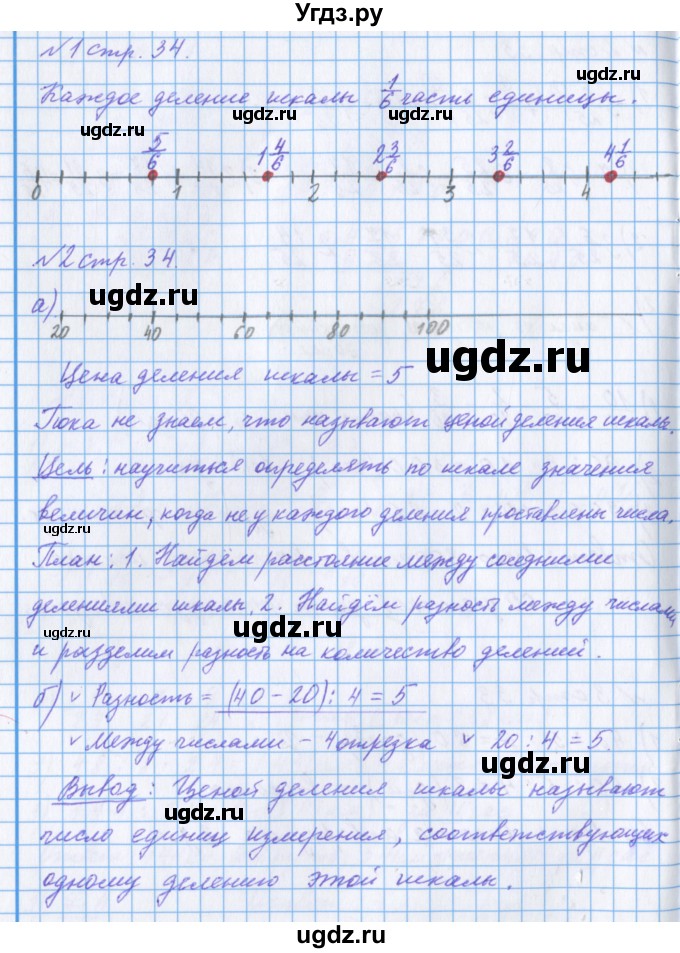 Угдз.ру
№1 стр. 34.
ugdz.ru
Каждое деление шкалы 1/6 часть единицы.
ugdz.ru ugdz.ru
5/6 1 4/6 2 3/6 3 2/6 4 1/6
0 1 2 3 4
№2 стр. 34.
ugdz.ru
а)
20 40 60 80 100
ugdz.ru
Цена деления шкалы = 5
Пока не знаем, что называют ценой деления шкалы.
Цель: научиться определять по шкале значения
ugdz.ru
величин, когда не у каждого деления проставлены числа.
План: 1. Найдём расстояние между соседними
делениями шкалы, 2. Найдём разность между числами
ugdz.ru ugdz.ru
и разделим разность на количество делений.
б) v Разность = (40 - 20) : 4 = 5
v Между числами - 4 отрезка v 20 : 4 = 5.
ugdz.ru
Вывод: Ценой деления шкалы называют
ugdz.ru
число единиц измерения, соответствующих
одному делению этой шкалы.
ugdz.ru
ugdz.ru